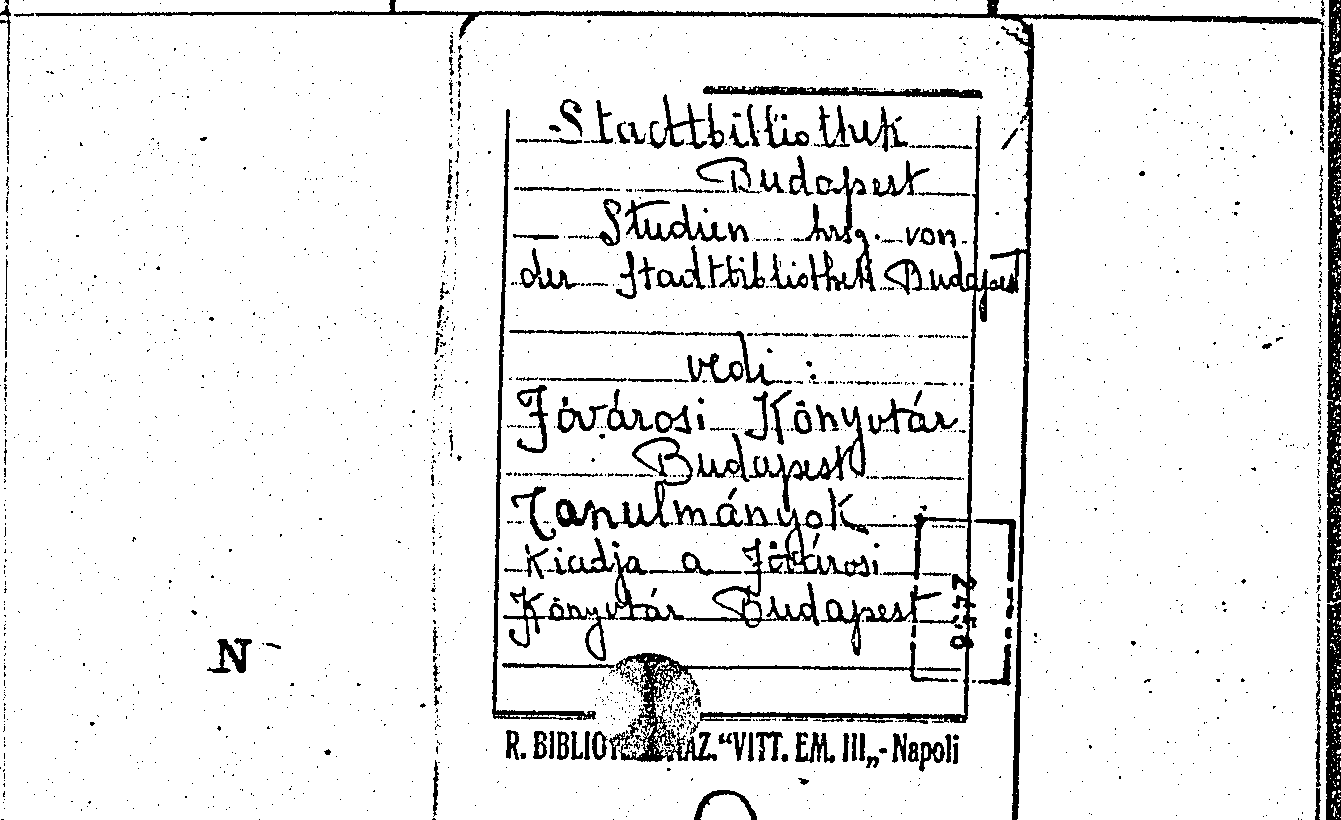 Stadtbibliothek
Budapest
— Studien hrsg. von
der Stadtbibliothek Budapest
vedi :
Fövárosi Könyvtár
Budapest
Tanulmányok
Kiadja a Fövárosi
Könyvtár Budapest
N
R. BIBLIOT AZ. “VITT. EM. III„ - Napoli